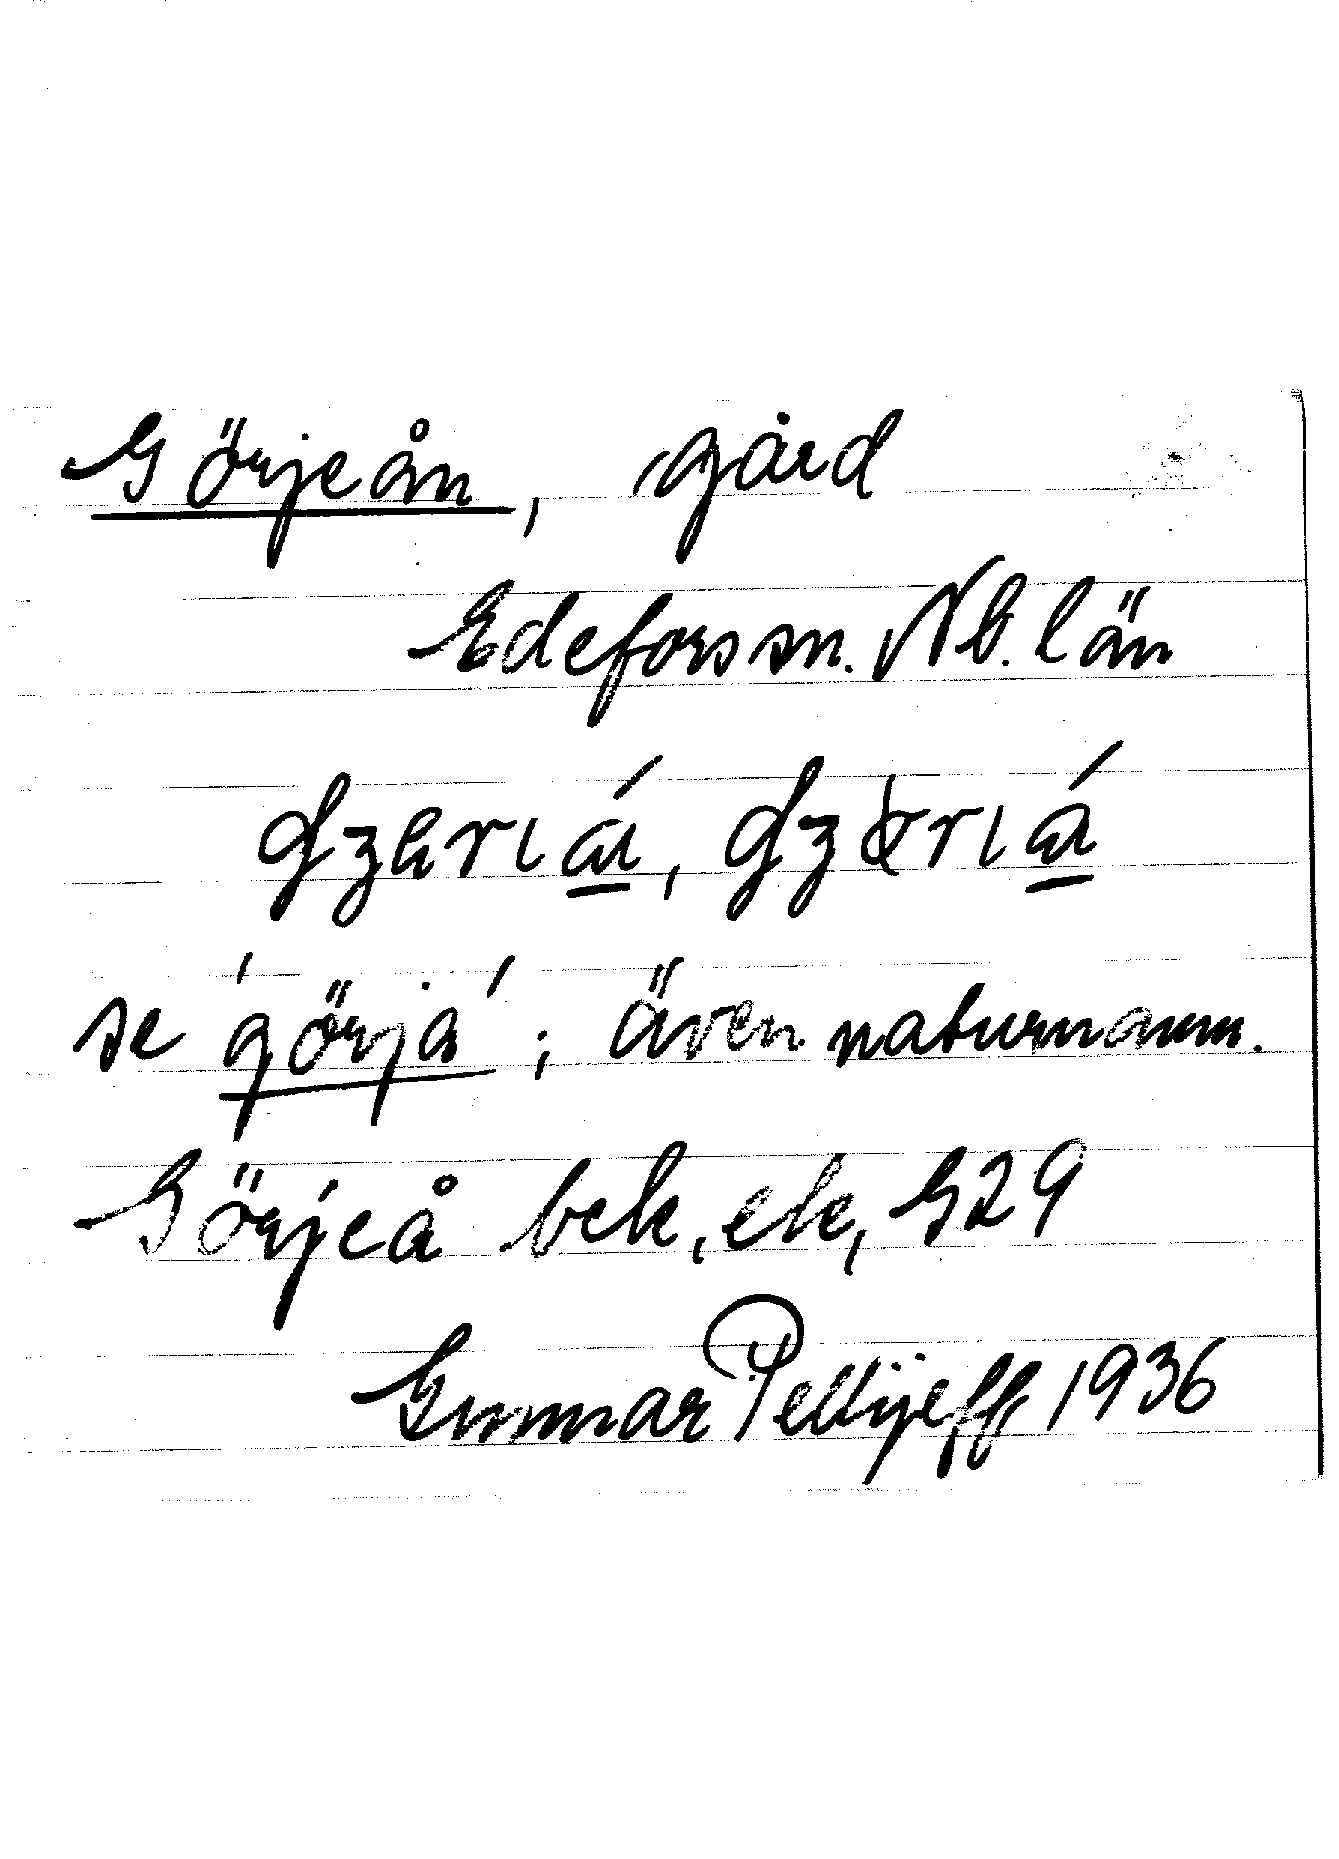 Görjeån, gård
Edefors sn. Nb. län
se görjå; även naturnamn.
Görjeå bek, ek, G29
Gunnar Pellijeff 1936